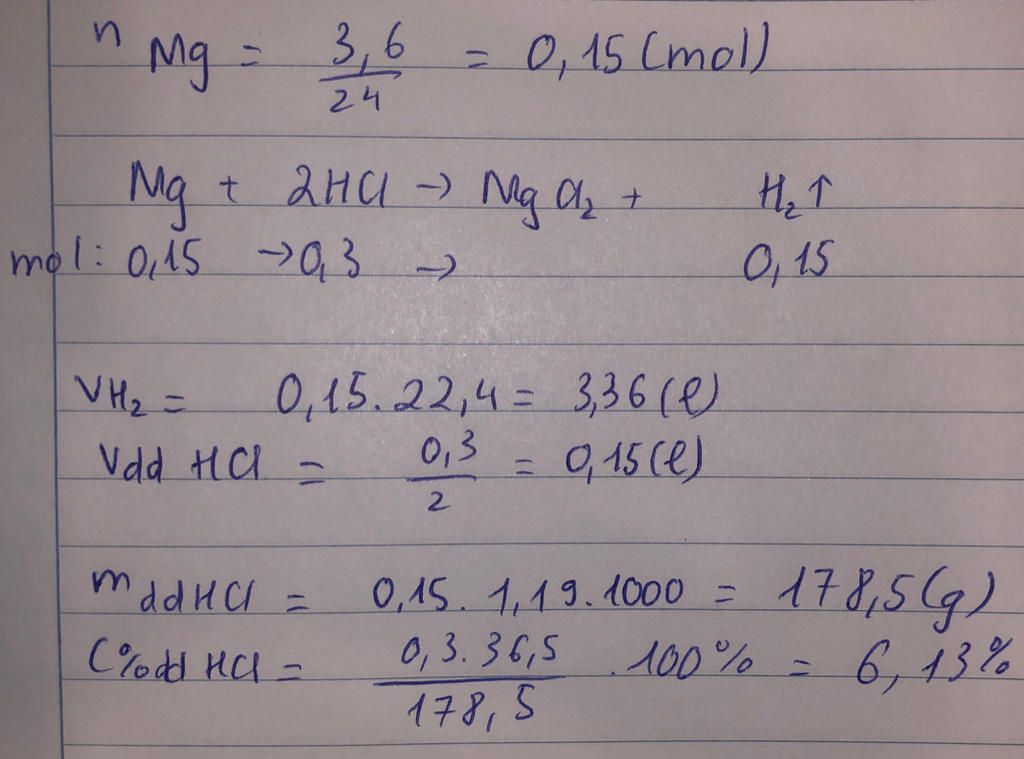 n Mg = 3,6 / 24 = 0,15 (mol)
Mg + 2HCl → MgCl₂ + H₂↑
mol: 0,15 → 0,3 → 0,15
VH₂ = 0,15 . 22,4 = 3,36 (l)
Vdd HCl = 0,3 / 2 = 0,15 (l)
m ddHCl = 0,15 . 1,19 . 1000 = 178,5 (g)
C% dd HCl = 0,3 . 36,5 / 178,5 . 100% = 6,13%